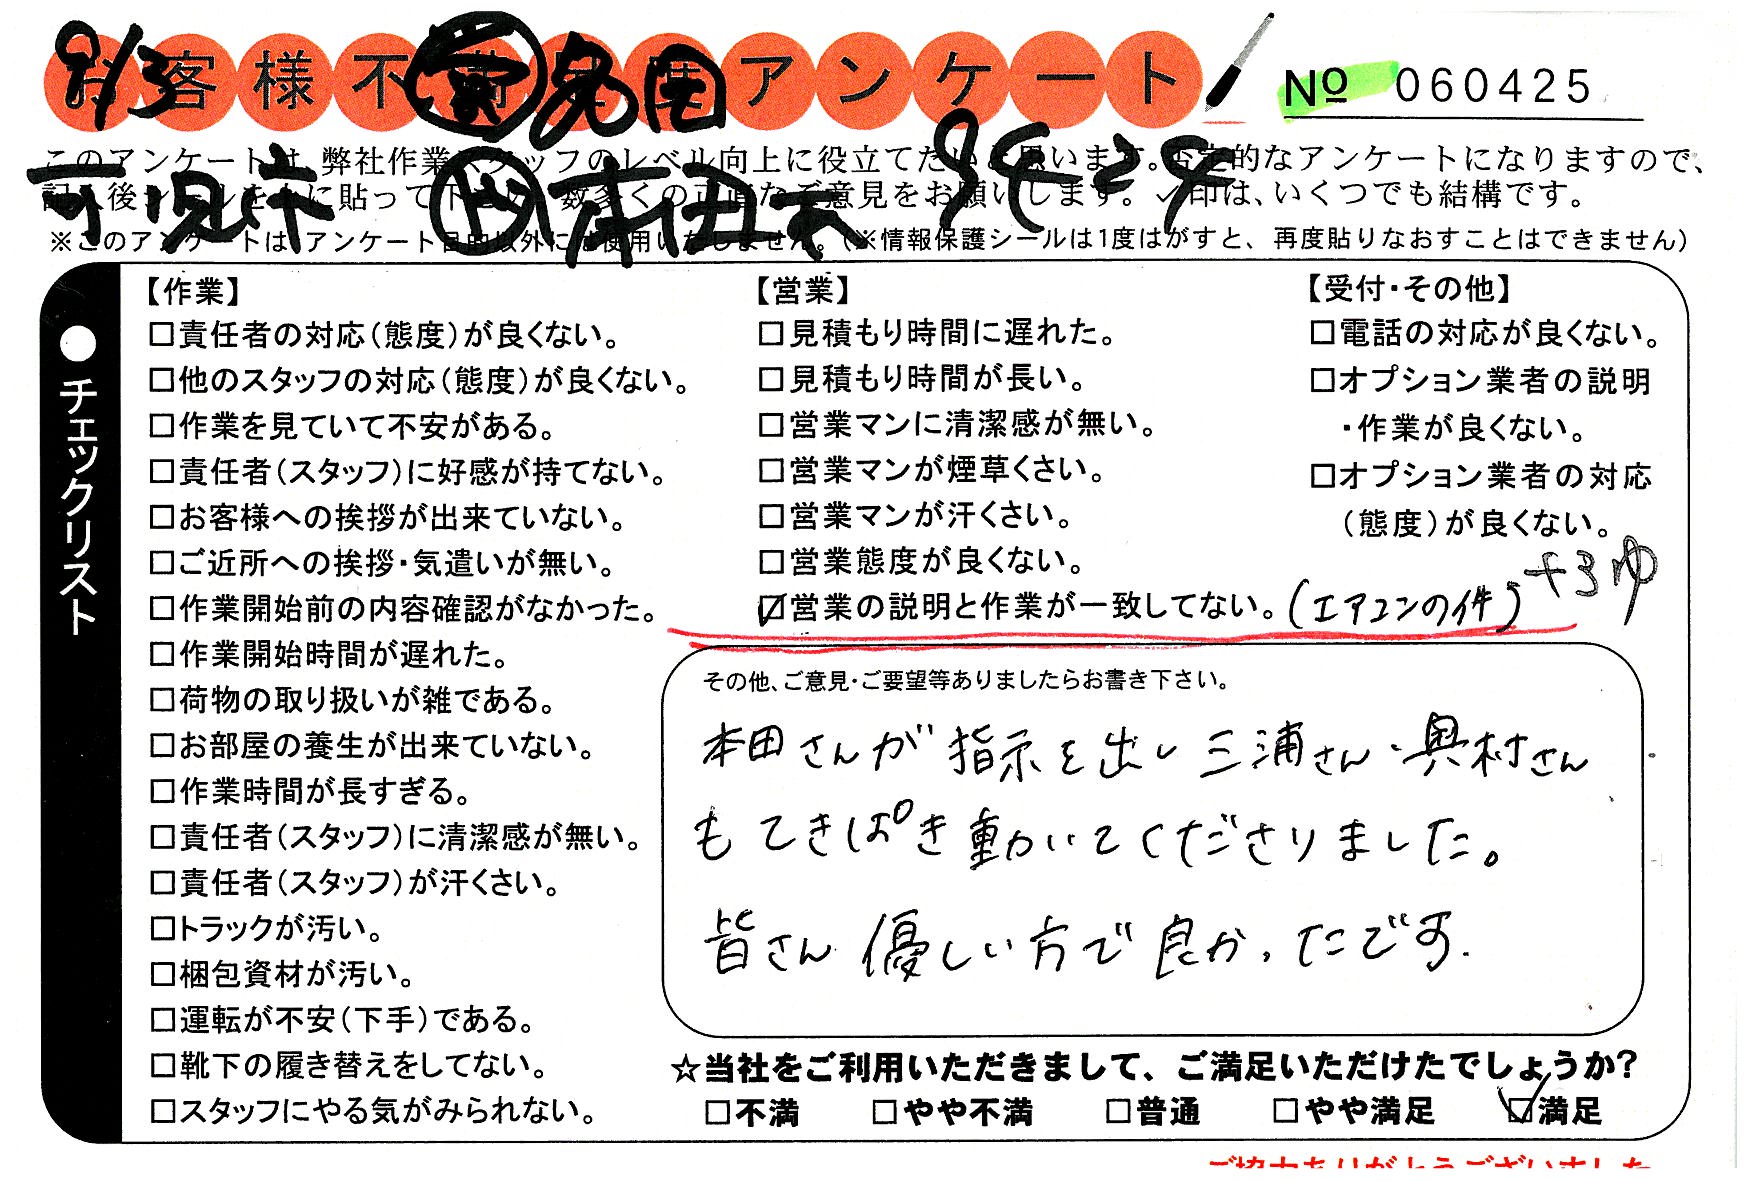 お客様不満足度アンケート
№ 060425
9/3
可児市
9424
このアンケートは、弊社作業スタッフのレベル向上に役立てたいと思います。否定的なアンケートになりますので、
記入後シールを上に貼って下さい。数多くの正直なご意見をお願いします。✓印は、いくつでも結構です。
※このアンケートは、アンケート目的以外には使用いたしません。（※情報保護シールは1度はがすと、再度貼りなおすことはできません）
●チェックリスト
【作業】
□責任者の対応（態度）が良くない。
□他のスタッフの対応（態度）が良くない。
□作業を見ていて不安がある。
□責任者（スタッフ）に好感が持てない。
□お客様への挨拶が出来ていない。
□ご近所への挨拶・気遣いが無い。
□作業開始前の内容確認がなかった。
□作業開始時間が遅れた。
□荷物の取り扱いが雑である。
□お部屋の養生が出来ていない。
□作業時間が長すぎる。
□責任者（スタッフ）に清潔感が無い。
□責任者（スタッフ）が汗くさい。
□トラックが汚い。
□梱包資材が汚い。
□運転が不安（下手）である。
□靴下の履き替えをしてない。
□スタッフにやる気がみられない。
【営業】
□見積もり時間に遅れた。
□見積もり時間が長い。
□営業マンに清潔感が無い。
□営業マンが煙草くさい。
□営業マンが汗くさい。
□営業態度が良くない。
☑営業の説明と作業が一致してない。（エアコンの件）
【受付・その他】
□電話の対応が良くない。
□オプション業者の説明
・作業が良くない。
□オプション業者の対応
（態度）が良くない。
その他、ご意見・ご要望等ありましたらお書き下さい。
本田さんが指示を出し三浦さん・奥村さん
もてきぱき動いてくださりました。
皆さん優しい方で良かったです.
☆当社をご利用いただきまして、ご満足いただけたでしょうか？
□不満 □やや不満 □普通 □やや満足 ☑満足
ご協力ありがとうございました